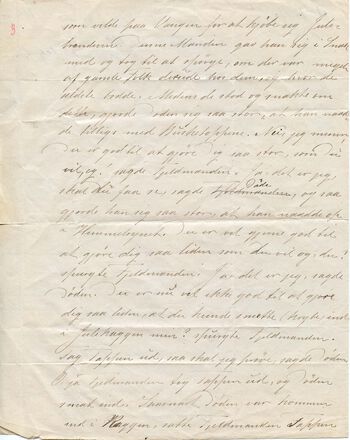 som vilde paa Vangen for at kjøbe sig Jule-
brændevin. Denne Manden gav han sig i Snak
med og tog til at spørge, om der var meget
af gamle Folk døde hos dem, og hvor de
døde
Medens de stod og snakte om
dette, gjorde Døden sig saa stor, at han naade
med Birketoppene. Nei, jeg mener
du er god til at gjøre dig saa stor, som du
vil, jeg, sagde Fjeldmanden. Ja, det er jeg,
skal du faa se, sagde Døden, og saa
gjorde han sig saa stor, at han naadde op
i Himmelbrynet. Du er vel ogsaa god til
at gjøre dig saa liden som du vil og, du?
spurgte Fjeldmanden. Ja det er jeg, sagde
Døden. Du er nu vel ikke god til at gjøre
dig saa liden, at du kunde smætte, krybe ind
i Julekaggen min? spurgte Fjeldmanden.
Tag Tappen ud, saa skal jeg prøve, sagde Døden
Ja Fjeldmanden tog Tappen ud, og Døden
smat ind. Saasnart Døden var kommen
ind i Kaggen, satte Fjeldmanden Tappen